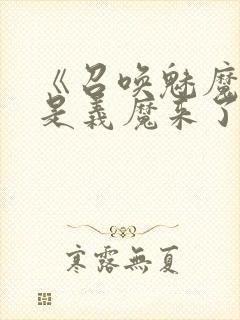 《召唤魅魔
是義魔来了
寒露無夏